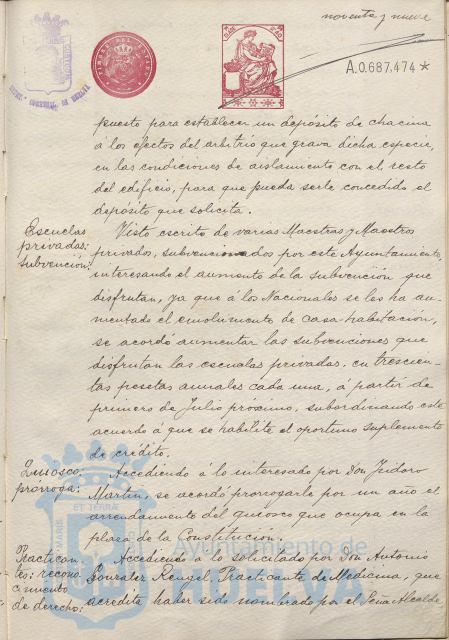 noventa y nueve
A.0.687.474 *
puesto para establecer un depósito de chacina
á los efectos del arbitrio que grava dicha especie,
en las condiciones de aislamiento con el resto
del edificio, para que pueda serle concedido el
depósito que solicita.
Escuelas
privadas:
subvención:
Visto escrito de varias Maestras y Maestros
privados, subvencionados por este Ayuntamiento,
interesando el aumento de la subvención que
disfrutan, ya que á los Nacionales se les ha au-
mentado el emolumento de casa habitación,
se acordó aumentar las subvenciones que
disfrutan las escuelas privadas, en trescien-
tas pesetas anuales cada una, á partir de
primero de Julio próximo, subordinando este
acuerdo á que se habilite el oportuno suplemento
de crédito.
Quiosco,
prórroga:
Accediendo á lo interesado por Don Isidoro
Martín, se acordó prorrogarle por un año el
arrendamiento del quiosco que ocupa en la
plaza de la Constitución.
Practican-
tes: recono-
cimiento
de derecho:
Accediendo á lo solicitado por Don Antonio
Gonzalez Rengel, Practicante de Medicina, que
acredita haber sido nombrado por el Señor Alcalde
Ayuntamiento de
HUELVA